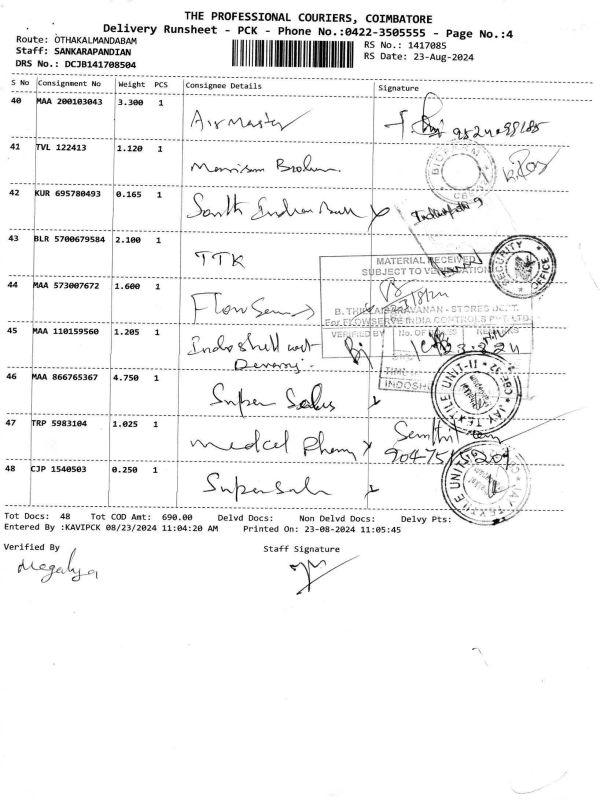 THE PROFESSIONAL COURIERS, COIMBATORE
Delivery Runsheet - PCK - Phone No.:0422-3505555 - Page No.:4
Route: OTHAKALMANDABAM
RS No.: 1417085
Staff: SANKARAPANDIAN
RS Date: 23-Aug-2024
DRS No.: DCJB141708504
S No Consignment No Weight PCS Consignee Details Signature
40 MAA 200103043 3.300 1
Air Master
41 TVL 122413 1.120 1
42 KUR 695780493 0.165 1
South Indian
43 BLR 5700679584 2.100 1
TTK
MATERIAL RECEIVED
SUBJECT TO
SECURITY OFFICE
44 MAA 573007672 1.600 1
STORES DEPT.
For FLOWSERVE INDIA CONTROLS PVT LTD
VERIFIED BY No. OF
45 MAA 110159560 1.205 1
Indo shell
INDOSH
46 MAA 866765367 4.750 1
Super Sales
JAY TEXTILE UNIT-II
47 TRP 5983104 1.025 1
48 CJP 1540503 0.250 1
Super Sales
JAY TEXTILE UNIT
Tot Docs: 48 Tot COD Amt: 690.00 Delvd Docs: Non Delvd Docs: Delvy Pts:
Entered By :KAVIPCK 08/23/2024 11:04:20 AM Printed On: 23-08-2024 11:05:45
Verified By Staff Signature